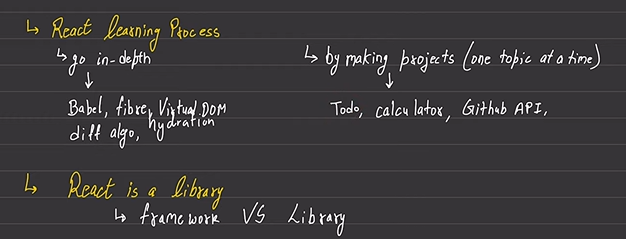 ↳ React learning Process
↳ go in-depth
↓
Babel, fibre, Virtual DOM
diff algo, hydration
↳ by making projects (one topic at a time)
↓
Todo, calculator, Github API,
↳ React is a library
↳ framework VS Library